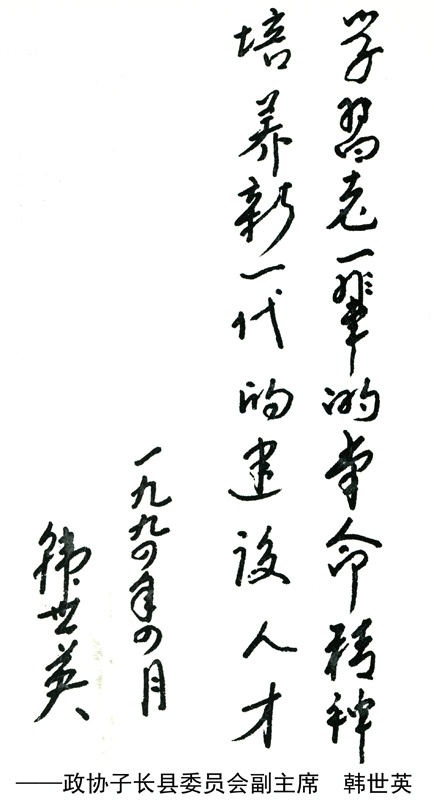 学習老一辈的革命精神
培养新一代的建设人才
一九九四年四月
韩世英
——政协子长县委员会副主席　韩世英